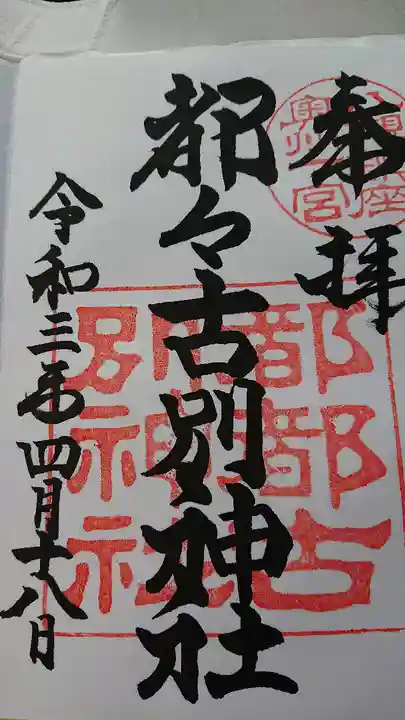 奉拝
都々古別神社
令和三年四月十八日
都都古
別神社
奥州一宮